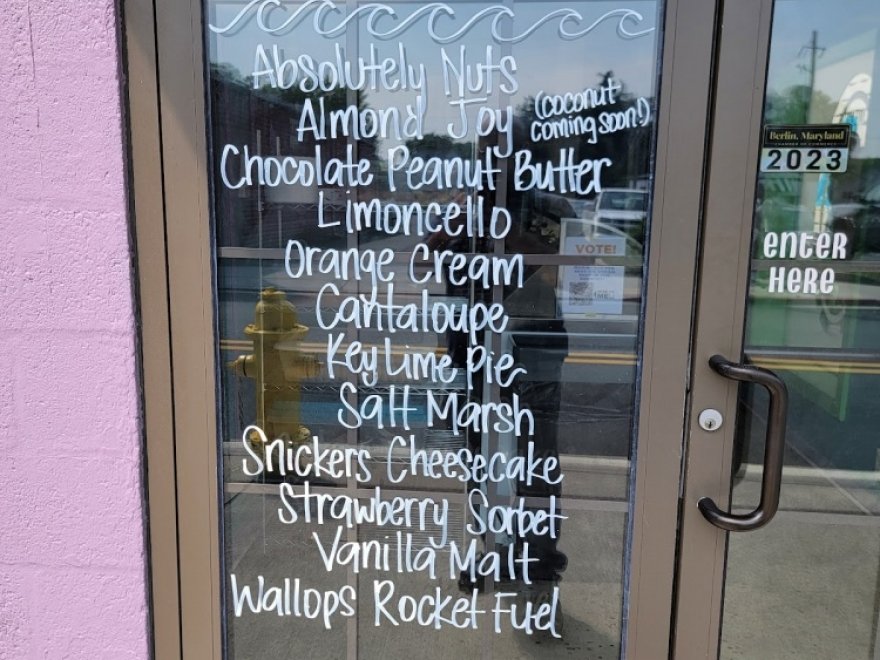 Absolutely Nuts
Almond Joy (coconut coming soon!)
Chocolate Peanut Butter
Limoncello
Orange Cream
Cantaloupe
Key Lime Pie
Salt Marsh
Snickers Cheesecake
Strawberry Sorbet
Vanilla Malt
Wallops Rocket Fuel
VOTE!
Berlin, Maryland
CHAMBER OF COMMERCE
2023
enter
HERE